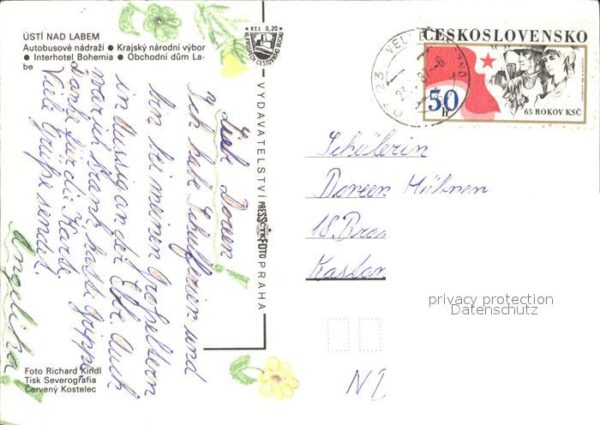 ÚSTÍ NAD LABEM
Autobusové nádraží ● Krajský národní výbor
● Interhotel Bohemia ● Obchodní dům La-
be
Kčs 0,20
VYDAVATELSTVÍ PRESSFOTO PRAHA
Liebe Doreen!
Ich habe Schulferien und
bin bei meinen Großeltern
in Aussig an der Elbe. Auch
war ich krank, hatte Grippe.
Danke für die Karte.
Viele Grüße sendet
Angelika!
Foto Richard Kindl
Tisk Severografia
Červený Kostelec
ČESKOSLOVENSKO
50
h
65 ROKOV KSČ
Schülerin
Doreen
18.
privacy protection
Datenschutz